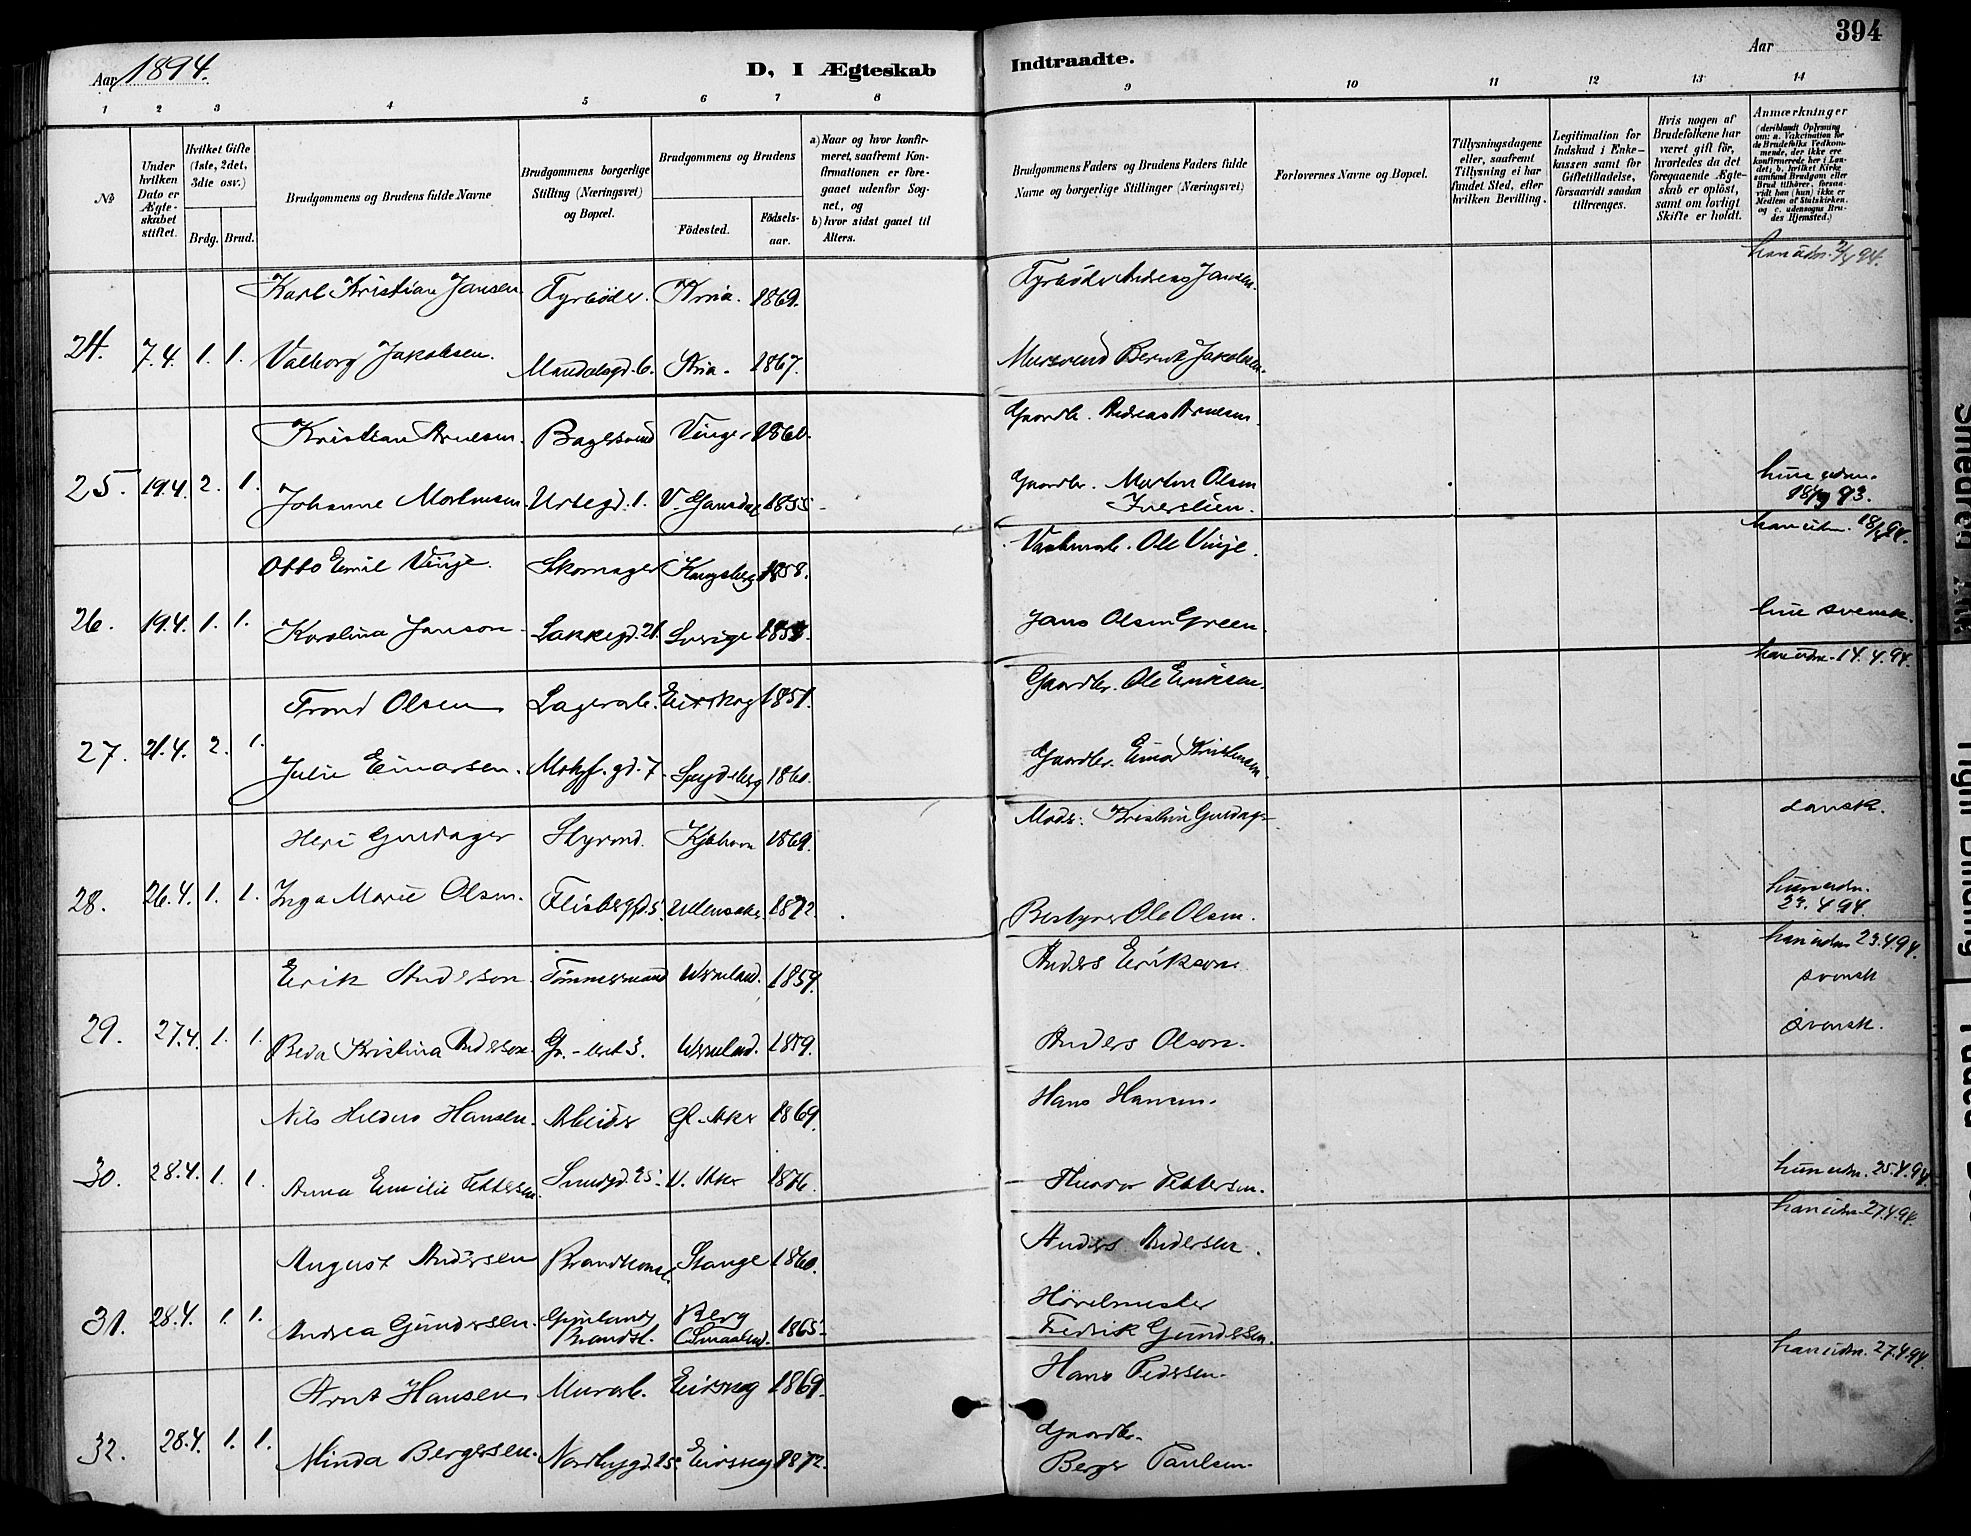 Aar 1894.
D, I Ægteskab
Indtraadte.
Aar
394
1 2 3 4 5 6 7 8
9 10 11 12 13 14
No
Under hvilken Dato er Ægteskabet stiftet.
Hvilket Gifte (1ste, 2det, 3die osv.)
Brdg. Brud.
Brudgommens og Brudens fulde Navne
Brudgommens borgerlige Stilling (Næringsvei) og Bopæl.
Brudgommens og Brudens
Födested.
Fødselsaar.
a) Naar og hvor konfirmeret, saafremt Konfirmationen er foregaaet udenfor Sognet, og
b) hvor sidst gaaet til Alters.
Brudgommens Faders og Brudens Faders fulde Navne og borgerlige Stillinger (Næringsvei)
Forlovernes Navne og Bopæl.
Tillysningsdagene eller, saafremt Tillysning ei har fundet Sted, efter hvilken Bevilling.
Legitimation for Indskud i Enkekassen samt for Giftetilladelse, forsaavidt saadan tiltrænges.
Hvis nogen af Brudefolkene har været gift för, hvorledes da det foregaaende Ægteskab er oplöst, samt om lovligt Skifte er holdt.
Anmærkninger
(deriblandt Oplysning om: a. Vakcination for de Brudefolks Vedkommende, der ikke ere konfirmerede her i Landet; b. hvilket Kirkesamfund Brudgom eller Brud tilhörer, forsaavidt han (hun) ikke er Medlem af Statskirken, og c. udensogns Brudes Hjemsted.)
Karl Kristian Jansen Fyrböder. Kria. 1869. Fyrböder Andreas Jansen.
24. 7.4. 1. 1. Valborg Jakobsen. Mandalsgd. 6. Kria. 1867. Mursvend Bernt Jakobsen.
Kristian Arnesen. Bagersvend Vinger 1860. Gaardbr. Andreas Arnesen
25. 19.4. 2. 1. Johanne Mortensen Urtegd. 1. 1855 Gaardbr. Morten Olsen
93.
Otto Emil Vinje. Skomager Kongsberg 1858. Ole Vinje. han udm. 94.
26. 19.4. 1. 1. Karolina Janson Lakkegd. 21. Sverige Jans Olsen Green. hun svensk.
Trond Olsen Lagerarb. Eidskog 1851. Gaardbr. Ole Eriksen. han udm. 14.4.94.
27. 21.4. 2. 1. Julie Einarsen. gd. 7. Spydeberg 1860. Gaardbr. Einar Kristensen
Styrmd. Kjbhavn 1869. Moder: Kristin dansk.
28. 26.4. 1. 1. Inga Marie Olsen. Flisberggd 5. Ullensaker 1872. Bestyrer Ole Olsen. hun udm. 23.4.94.
Erik Anderson Tömmermand Wermland. 1859. Anders Erikson han udm 23.4.94. svensk
29. 27.4. 1. 1. Beda Kristina Anderson 3. Wermland. 1859. Anders Olson. Svensk.
Nils Hansen. Arbeider Aker 1869. Hans Hansen.
30. 28.4. 1. 1. Anna Emilie Pettersen. 25. V. Aker 1876. Pettersen. hun udm. 25.4.94.
August Andersen Stange 1860. Anders Andersen. han udm 27.4.94.
31. 28.4. 1. 1. Andrea Gundersen. Grönlands Brandst. Berg (Smaalen). 1865. Fredrik Gundersen.
Arnt Hansen Murarb. Eidskog 1869. Hans Pedersen. han udm. 27.4.94.
32. 28.4. 1. 1. Minda Bergersen. Nordbygd. 25. Eidskog 1872. Gaardbr. Berger Paulsen.